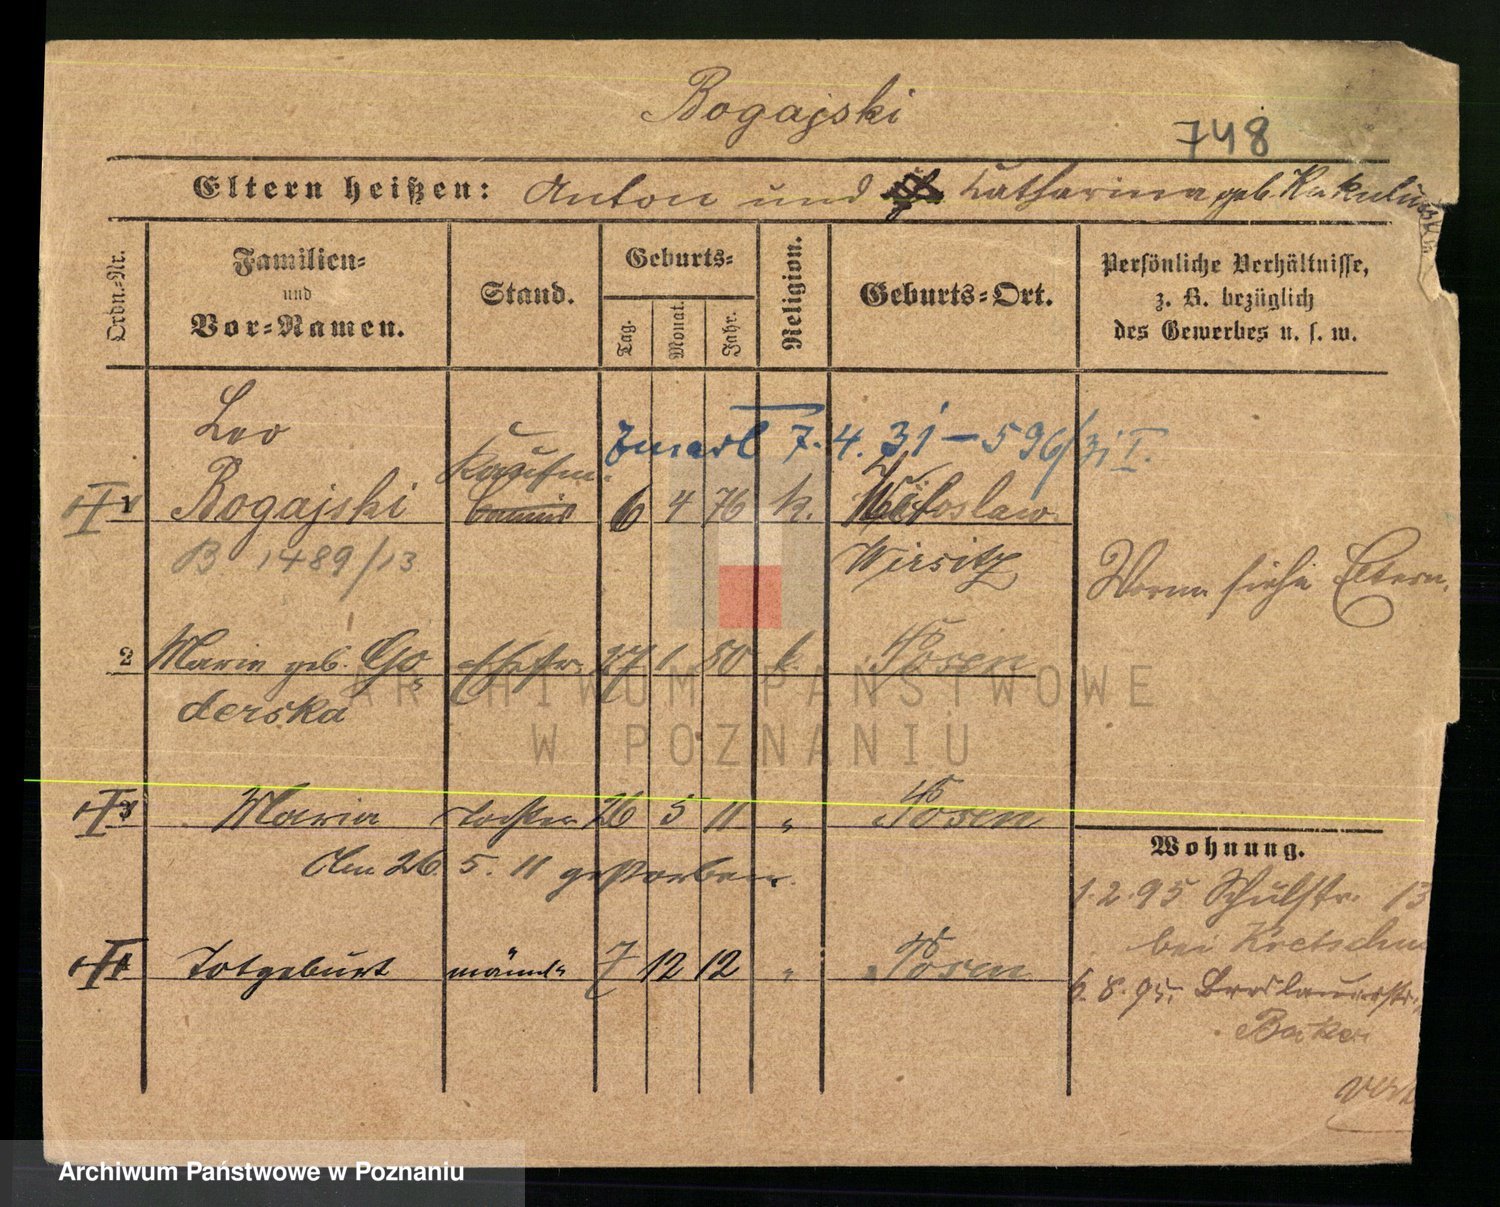 Bogajski
748
Eltern heißen: Anton und Katharina geb. Kakulinska
Ordn.-Nr.
Familien-
und
Vor-Namen.
Stand.
Geburts-
Tag.
Monat.
Jahr.
Religion.
Geburts-Ort.
Persönliche Verhältnisse,
z. B. bezüglich
des Gewerbes u. s. w.
Leo
Zmarł 7.4.31 – 596/31 I.
Kaufm.
1 Bogajski Commis 6 4 76 k. Wiloslaw
B. 1489/13
Wirsitz
Wenn siehe Eltern.
2 Marie geb. Go- Ehefr. 27 1 80 k. Posen
derska
3 Maria Tochter 26 5 11 " Posen
Am 26. 5. 11 gestorben.
Wohnung.
1.2.95 Schulstr. 13
bei Kretschm
4 Totgeburt männl. 7 12 12 " Posen
6.8.95. Breslauerstr.
Baker
ARCHIWUM PAŃSTWOWE
W POZNANIU
Archiwum Państwowe w Poznaniu